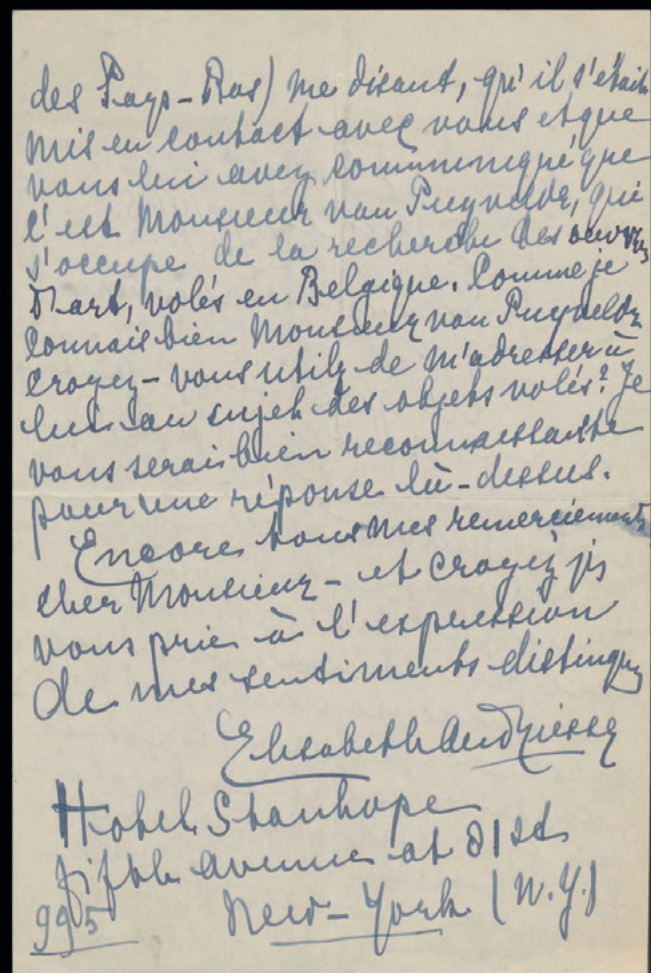 des Pays-Bas) me disant, qu'il s'était
mis en contact avec vous et que
vous lui avez communiqué que
c'est Monsieur van Puyvelde, qui
s'occupe de la recherche des œuvres
d'art, volés en Belgique. Comme je
connais bien Monsieur van Puyvelde
croyez-vous utile de m'adresser à
lui au sujet des objets volés? Je
vous serais bien reconnaissante
pour une réponse là-dessus.
Encore tous mes remerciements
cher Monsieur - et croyez je
vous prie à l'expression
de mes sentiments distingués
Elisabeth Andriesse
Hotel Stanhope
fifth avenue at 81st
995 New-York (N.Y.)